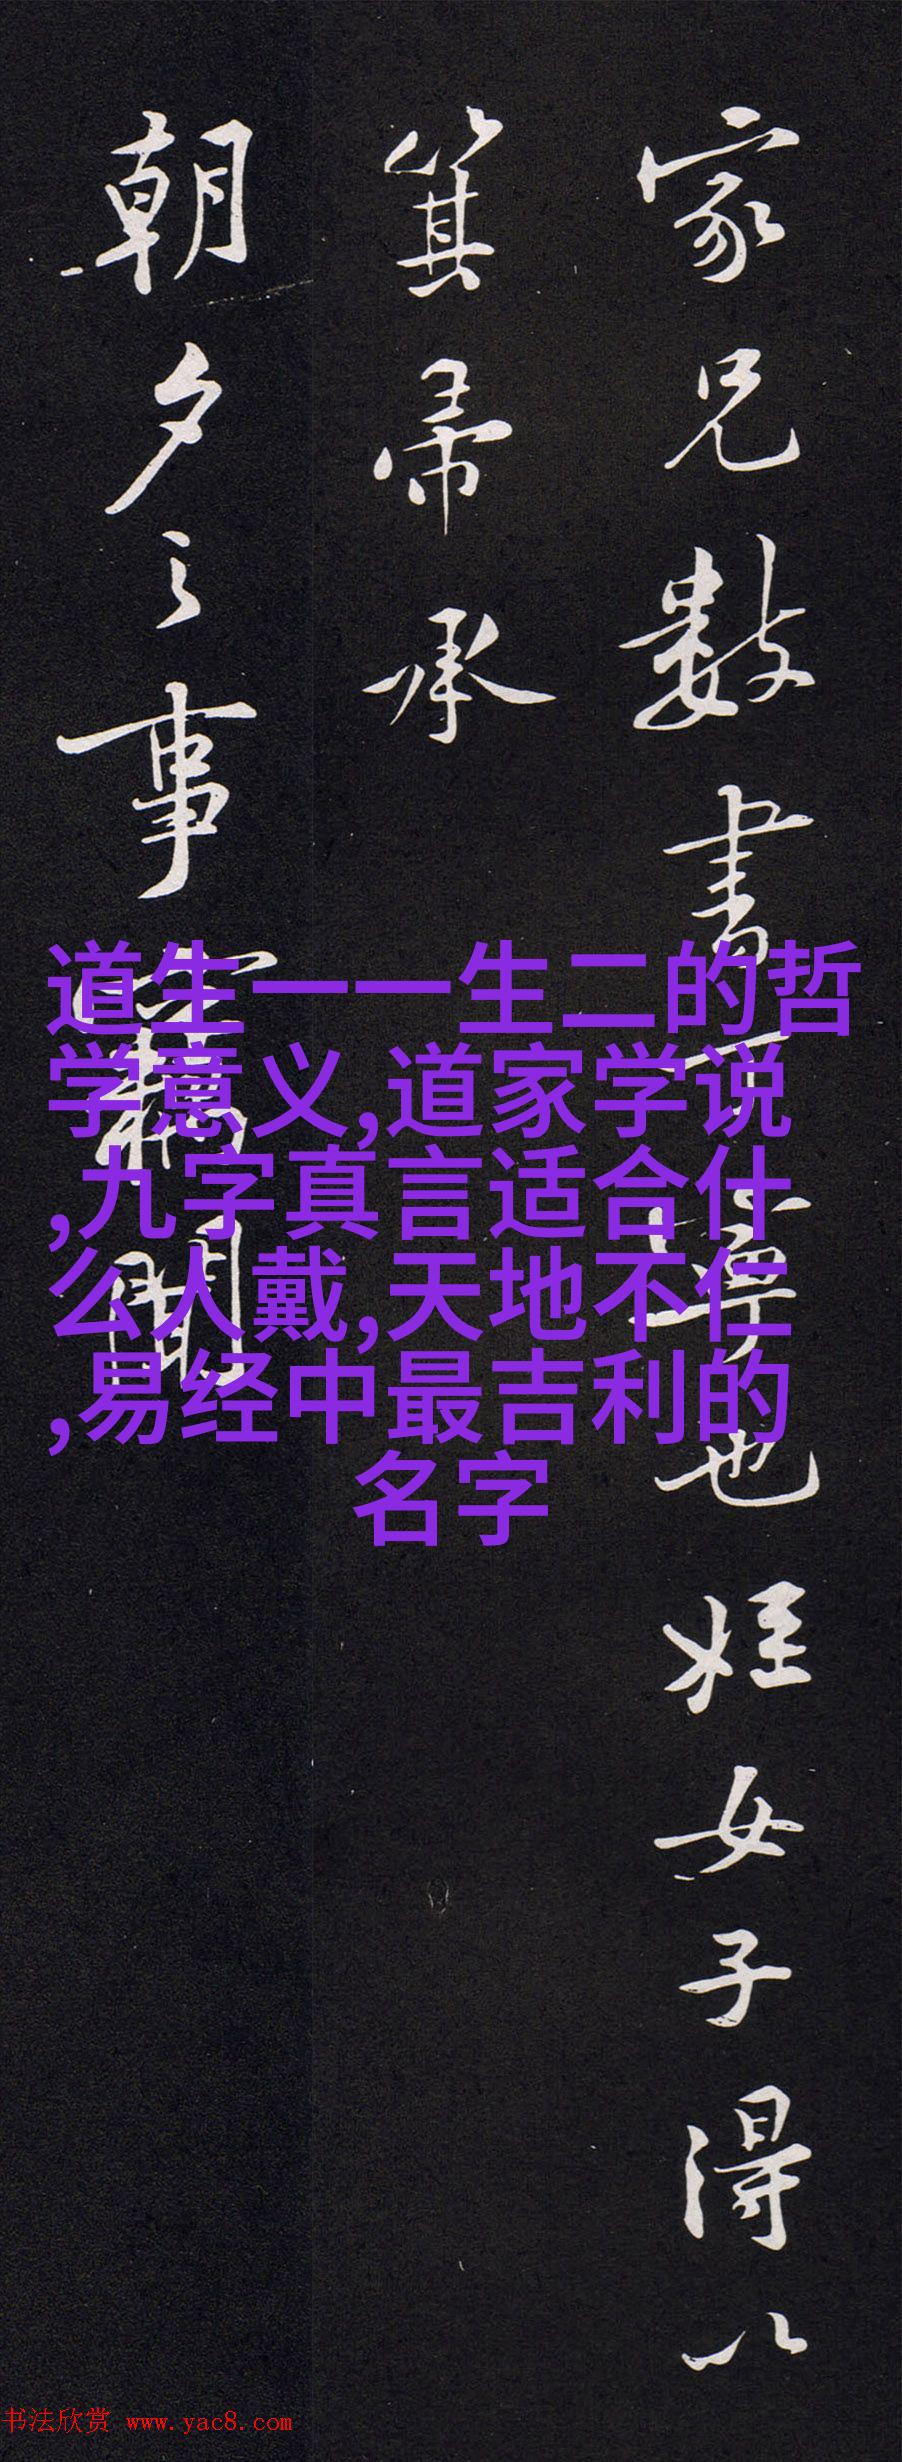 家兄数書丁寧也姪女子得以
箕帚承
朝夕之事竊聞
道生一一生二的哲
学意义,道家学说
,九字真言适合什
么人戴,天地不仁
,易经中最吉利的
名字
书法欣赏 www.yac8.com